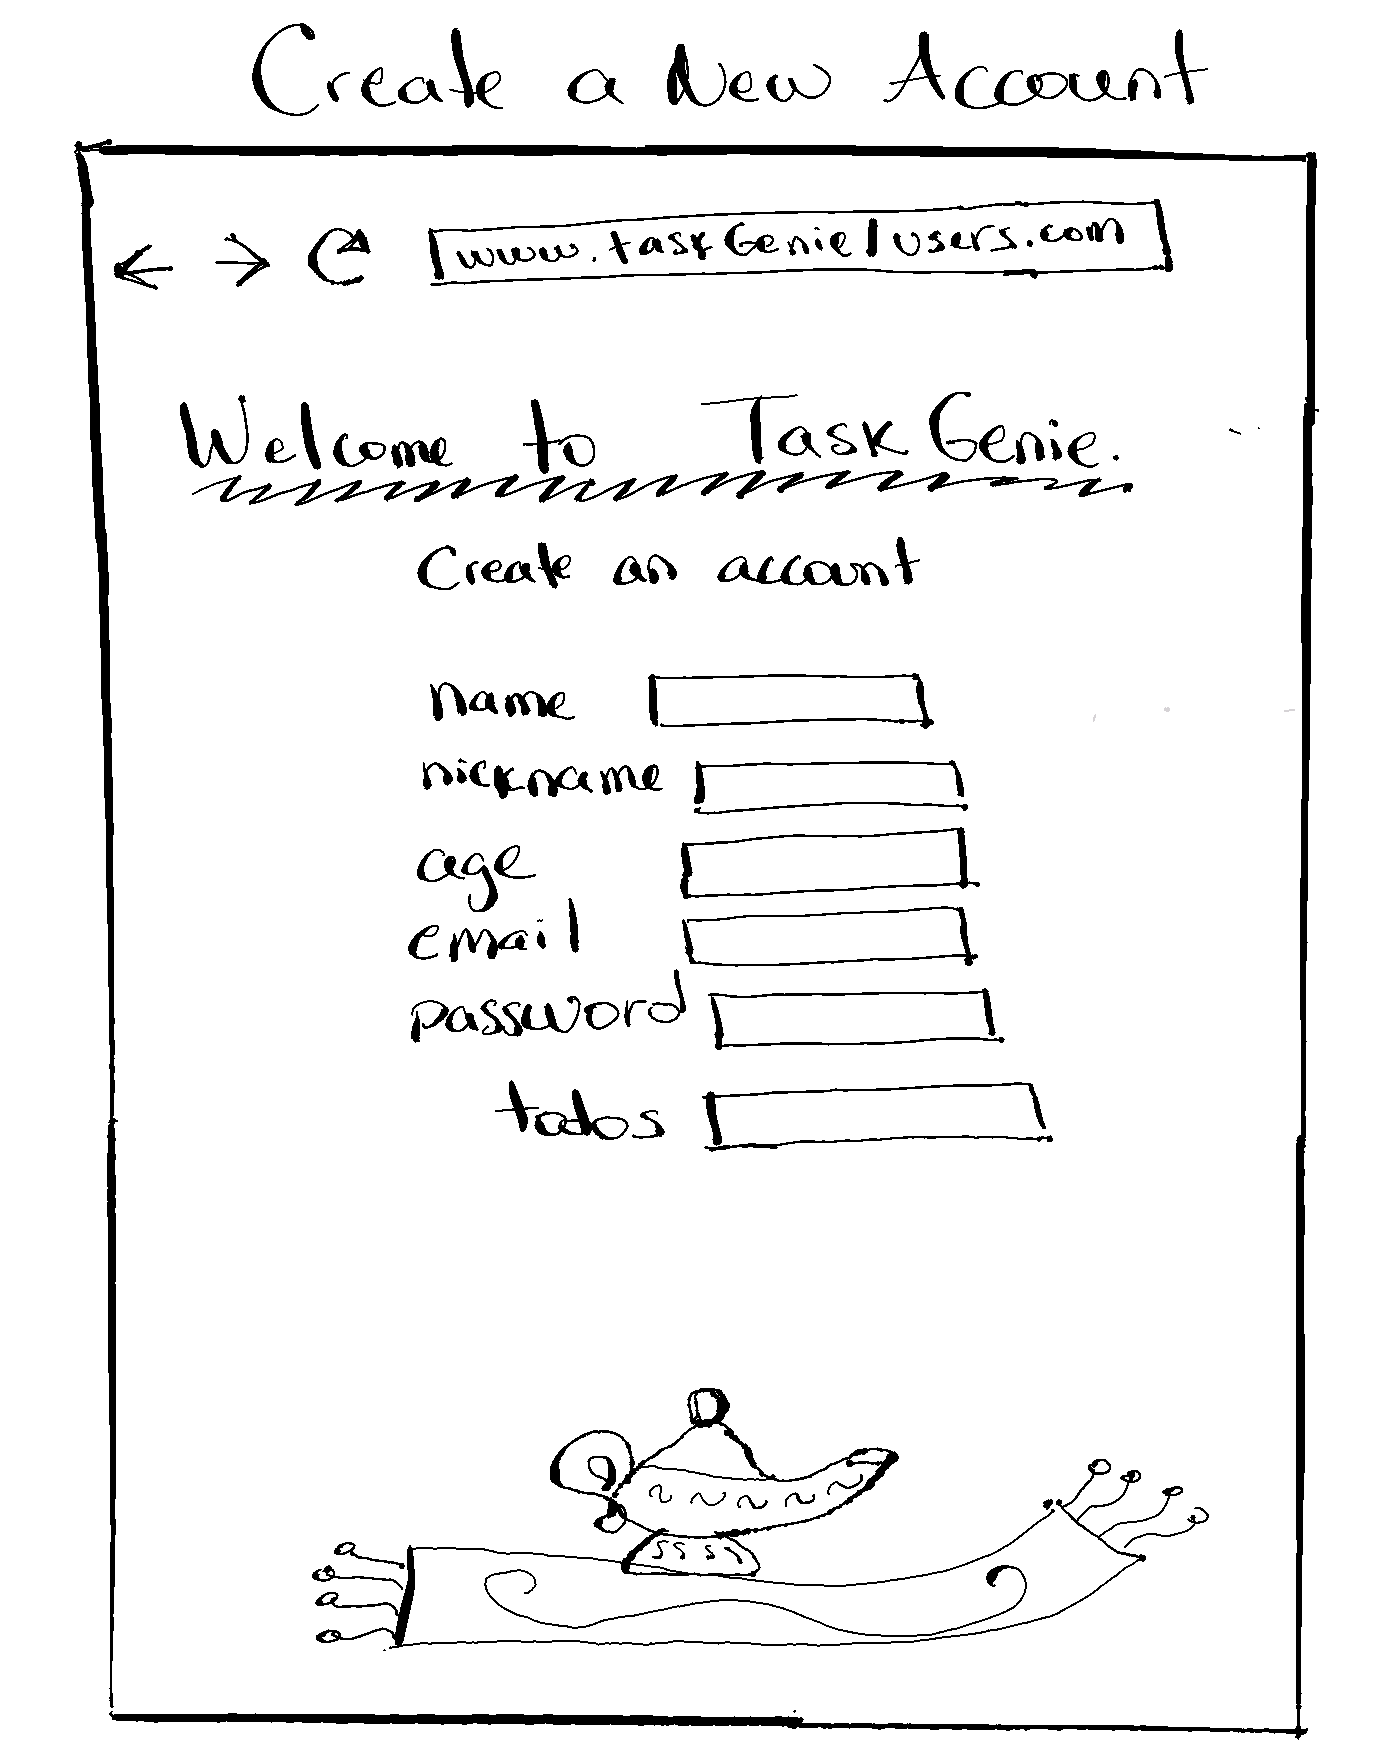 Create a New Account
www.taskGenie/users.com
Welcome to Task Genie.
Create an account
name
nickname
age
email
password
todos